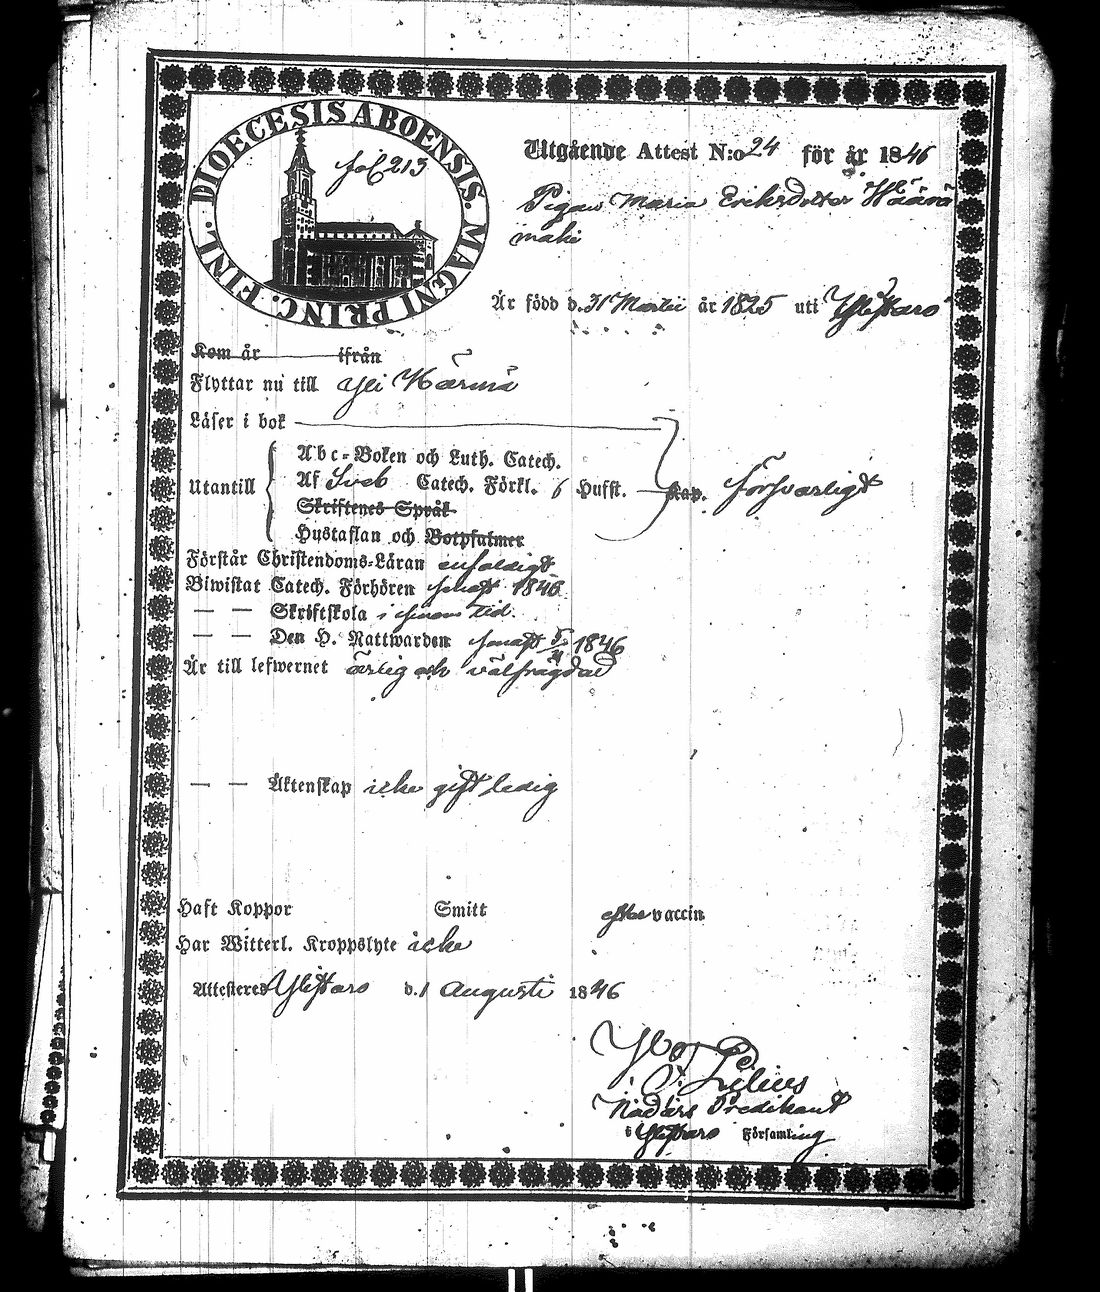 DIOECESIS ABOENSIS. MAGNI PRINC. FINL.
fol 213
Utgående Attest N:o 24 för år 1846
Pigan Maria Eriksdotter Häärä
mäki
Är född d. 31 Martii år 1825 uti Ylistaro
Kom år ifrån
Flyttar nu till Yli Härmä
Läser i bok
Utantill
Abc-Boken och Luth. Catech.
Af Sveb Catech. Förkl. 6 Hufst. Kap. försvarligt
Skriftenes Språk
Hustaflan och Botpsalmer
Förstår Christendoms-Läran enfaldigt
Biwistat Catech. Förhören senast 1846
— — Skriftskola i sinom tid.
— — Den H. Nattwarden senast 5/4 1846
Är till lefwernet ärlig och välfrägdad
— — Äktenskap icke gift ledig
Haft Koppor Smitt efter vaccin
Har Witterl. Kroppslyte icke
Attesteres Ylistaro d. 1 Augusti 1846
Lilius
Nådårs Predikant
i Ylistaro Församling